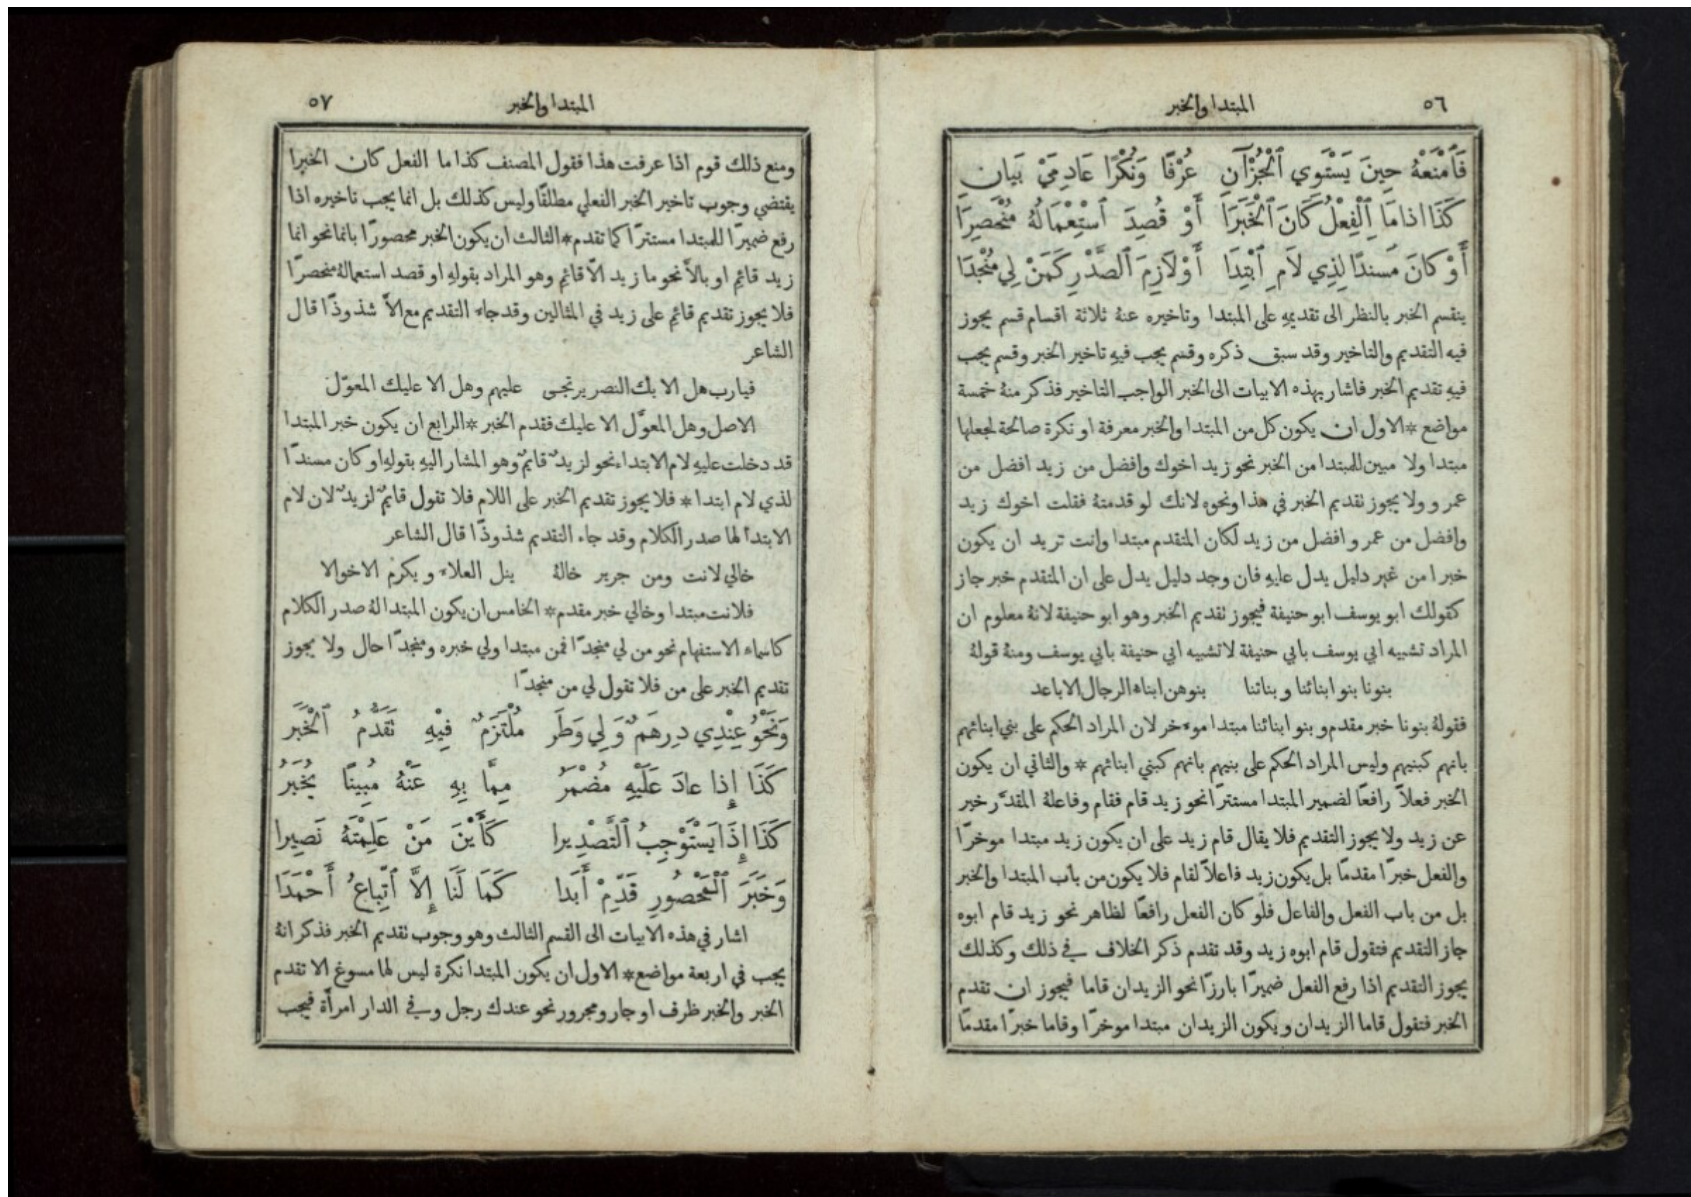 ٥٦
المبتدا والخبر
فَٱمْنَعْهُ حِينَ يَسْتَوِي ٱلْجُزْآنِ عُرْفًا وَنُكْرًا عَادِمَيْ بَيَانِ
كَذَا اذا مَا ٱلْفِعْلُ كَانَ ٱلْخَبَرَا أَوْ قُصِدَ ٱسْتِعْمَالُهُ مُنْحَصِرَا
أَوْ كانَ مُسندًا لِذِي لاَمِ ٱبْتِدَا أَوْ لاَزِمَ ٱلصَّدْرِ كَمَنْ لِي مُنْجِدَا
ينقسم الخبر بالنظر الى تقديمهِ على المبتدا وتاخيره عنهُ ثلاثة اقسام قسم يجوز
فيه التقديم والتاخير وقد سبق ذكره وقسم يجب فيهِ تاخير الخبر وقسم يجب
فيهِ تقديم الخبر فاشار بهذه الابيات الى الخبر الواجب التاخير فذكر منهُ خمسة
مواضع * الاول ان يكون كل من المبتدا والخبر معرفة او نكرة صالحة لجعلها
مبتدا ولا مبين للمبتدا من الخبر نحو زيد اخوك وافضل من زيد افضل من
عمرو ولا يجوز تقديم الخبر في هذا ونحوه لانك لو قدمتهُ فقلت اخوك زيد
وافضل من عمرو افضل من زيد لكان المتقدم مبتدا وانت تريد ان يكون
خبرا من غير دليل يدل عليهِ فان وجد دليل يدل على ان المتقدم خبر جاز
كقولك ابو يوسف ابو حنيفة فيجوز تقديم الخبر وهو ابو حنيفة لانهُ معلوم ان
المراد تشبيه ابي يوسف بابي حنيفة لا تشبيه ابي حنيفة بابي يوسف ومنهُ قولهُ
بنونا بنو ابنائنا وبناتنا بنوهن ابناء الرجال الاباعد
فقولهُ بنونا خبر مقدم وبنو ابنائنا مبتدا موءخر لان المراد الحكم على بني ابنائهم
بانهم كبنيهم وليس المراد الحكم على بنيهم بانهم كبني ابنائهم * والثاني ان يكون
الخبر فعلاً رافعًا لضمير المبتدا مستترًا نحو زيد قام فقام وفاعلهُ المقدَّر خبر
عن زيد ولا يجوز التقديم فلا يقال قام زيد على ان يكون زيد مبتدا موخرًا
والفعل خبرًا مقدمًا بل يكون زيد فاعلاً لقام فلا يكون من باب المبتدا والخبر
بل من باب الفعل والفاعل فلو كان الفعل رافعًا لظاهر نحو زيد قام ابوه
جاز التقديم فتقول قام ابوه زيد وقد تقدم ذكر الخلاف في ذلك وكذلك
يجوز التقديم اذا رفع الفعل ضميرًا بارزًا نحو الزيدان قاما فيجوز ان تقدم
الخبر فتقول قاما الزيدان ويكون الزيدان مبتدا موخرًا وقاما خبرًا مقدمًا
المبتدا والخبر
٥٧
ومنع ذلك قوم اذا عرفت هذا فقول المصنف كذا ما الفعل كان الخبرا
يقتضي وجوب تاخير الخبر الفعلي مطلقًا وليس كذلك بل انما يجب تاخيره اذا
رفع ضميرًا للمبتدا مستترًا كما تقدم * الثالث ان يكون الخبر محصورًا بانما نحو انما
زيد قائم او بالاّ نحو ما زيد الاّ قائم وهو المراد بقولهِ او قصد استعمالهُ منحصرًا
فلا يجوز تقديم قائم على زيد في المثالين وقد جاء التقديم مع الاّ شذوذًا قال
الشاعر
فيا رب هل الا بك النصر يرتجى عليهم وهل الا عليك المعوّل
الاصل وهل المعوّل الا عليك فقدم الخبر * الرابع ان يكون خبر المبتدا
قد دخلت عليهِ لام الابتداء نحو لزيدٌ قايمٌ وهو المشار اليهِ بقولهِ او كان مسندًا
لذي لام ابتدا * فلا يجوز تقديم الخبر على اللام فلا تقول قايمٌ لزيدٌ لان لام
الابتدأ لها صدر الكلام وقد جاء التقديم شذوذًا قال الشاعر
خالي لانت ومن جرير خالهُ ينل العلاء ويكرم الاخوالا
فلانت مبتدا وخالي خبر مقدم * الخامس ان يكون المبتدا لهُ صدر الكلام
كاسماء الاستفهام نحو من لي منجدًا فمن مبتدا ولي خبره ومنجدًا حال ولا يجوز
تقديم الخبر على من فلا تقول لي من منجدًا
وَنَحْوُ عِنْدِي دِرهَمٌ وَلِي وَطَر مُلْتَزَمٌ فِيْهِ تَقَدُّمُ ٱلْخَبَر
كَذَا إِذا عادَ عَلَيْهِ مُضْمَرُ مِمَّا بِهِ عَنْهُ مُبِينًا يُخبَرُ
كَذَا إِذَا يَسْتَوْجِبُ ٱلتَّصْدِيرا كَأَيْنَ مَنْ عَلِمْتَهُ نَصِيرا
وَخَبَرَ ٱلْمَحْصُورِ قَدِّمْ أَبَدا كَمَا لَنَا إِلاَّ ٱتِّباعُ أَحْمَدَا
اشار في هذه الابيات الى القسم الثالث وهو وجوب تقديم الخبر فذكر انهُ
يجب في اربعة مواضع * الاول ان يكون المبتدا نكرة ليس لها مسوغ الا تقدم
الخبر والخبر ظرف او جار ومجرور نحو عندك رجل وفي الدار امرأة فيجب